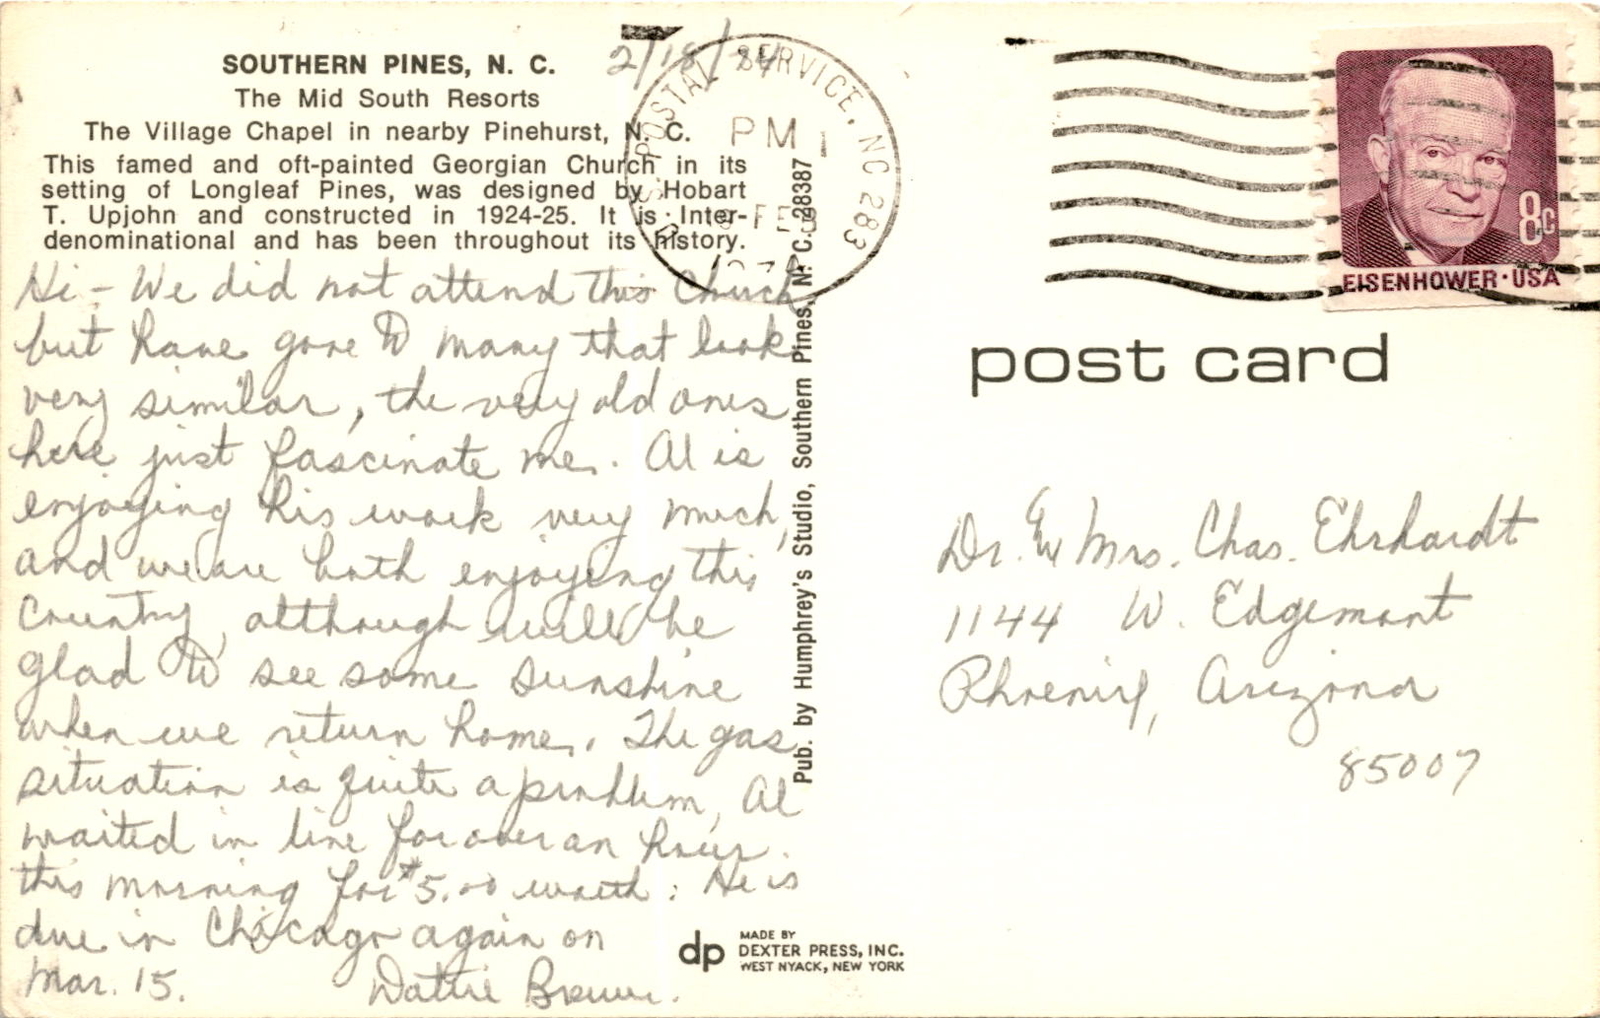 SOUTHERN PINES, N. C.
The Mid South Resorts
The Village Chapel in nearby Pinehurst, N. C.
This famed and oft-painted Georgian Church in its
setting of Longleaf Pines, was designed by Hobart
T. Upjohn and constructed in 1924-25. It is Inter-
denominational and has been throughout its history.
2/18/74
U.S. POSTAL SERVICE, NC 283
PM
FEB
Hi - We did not attend this Church
but have gone to many that look
very similar, the very old ones
here just fascinate me. Al is
enjoying his work very much,
and we are both enjoying this
Country, although will be
glad to see some sunshine
when we return home. The gas
situation is quite a problem, Al
waited in line for over an hour
this morning for $5.00 worth. He is
due in Chicago again on
Mar. 15.
Pub. by Humphrey's Studio, Southern Pines, N. C. 28387
8c
EISENHOWER · USA
post card
Dr. & Mrs. Chas. Ehrhardt
1144 W. Edgemont
Phoenix, Arizona
85007
dp
MADE BY
DEXTER PRESS, INC.
WEST NYACK, NEW YORK